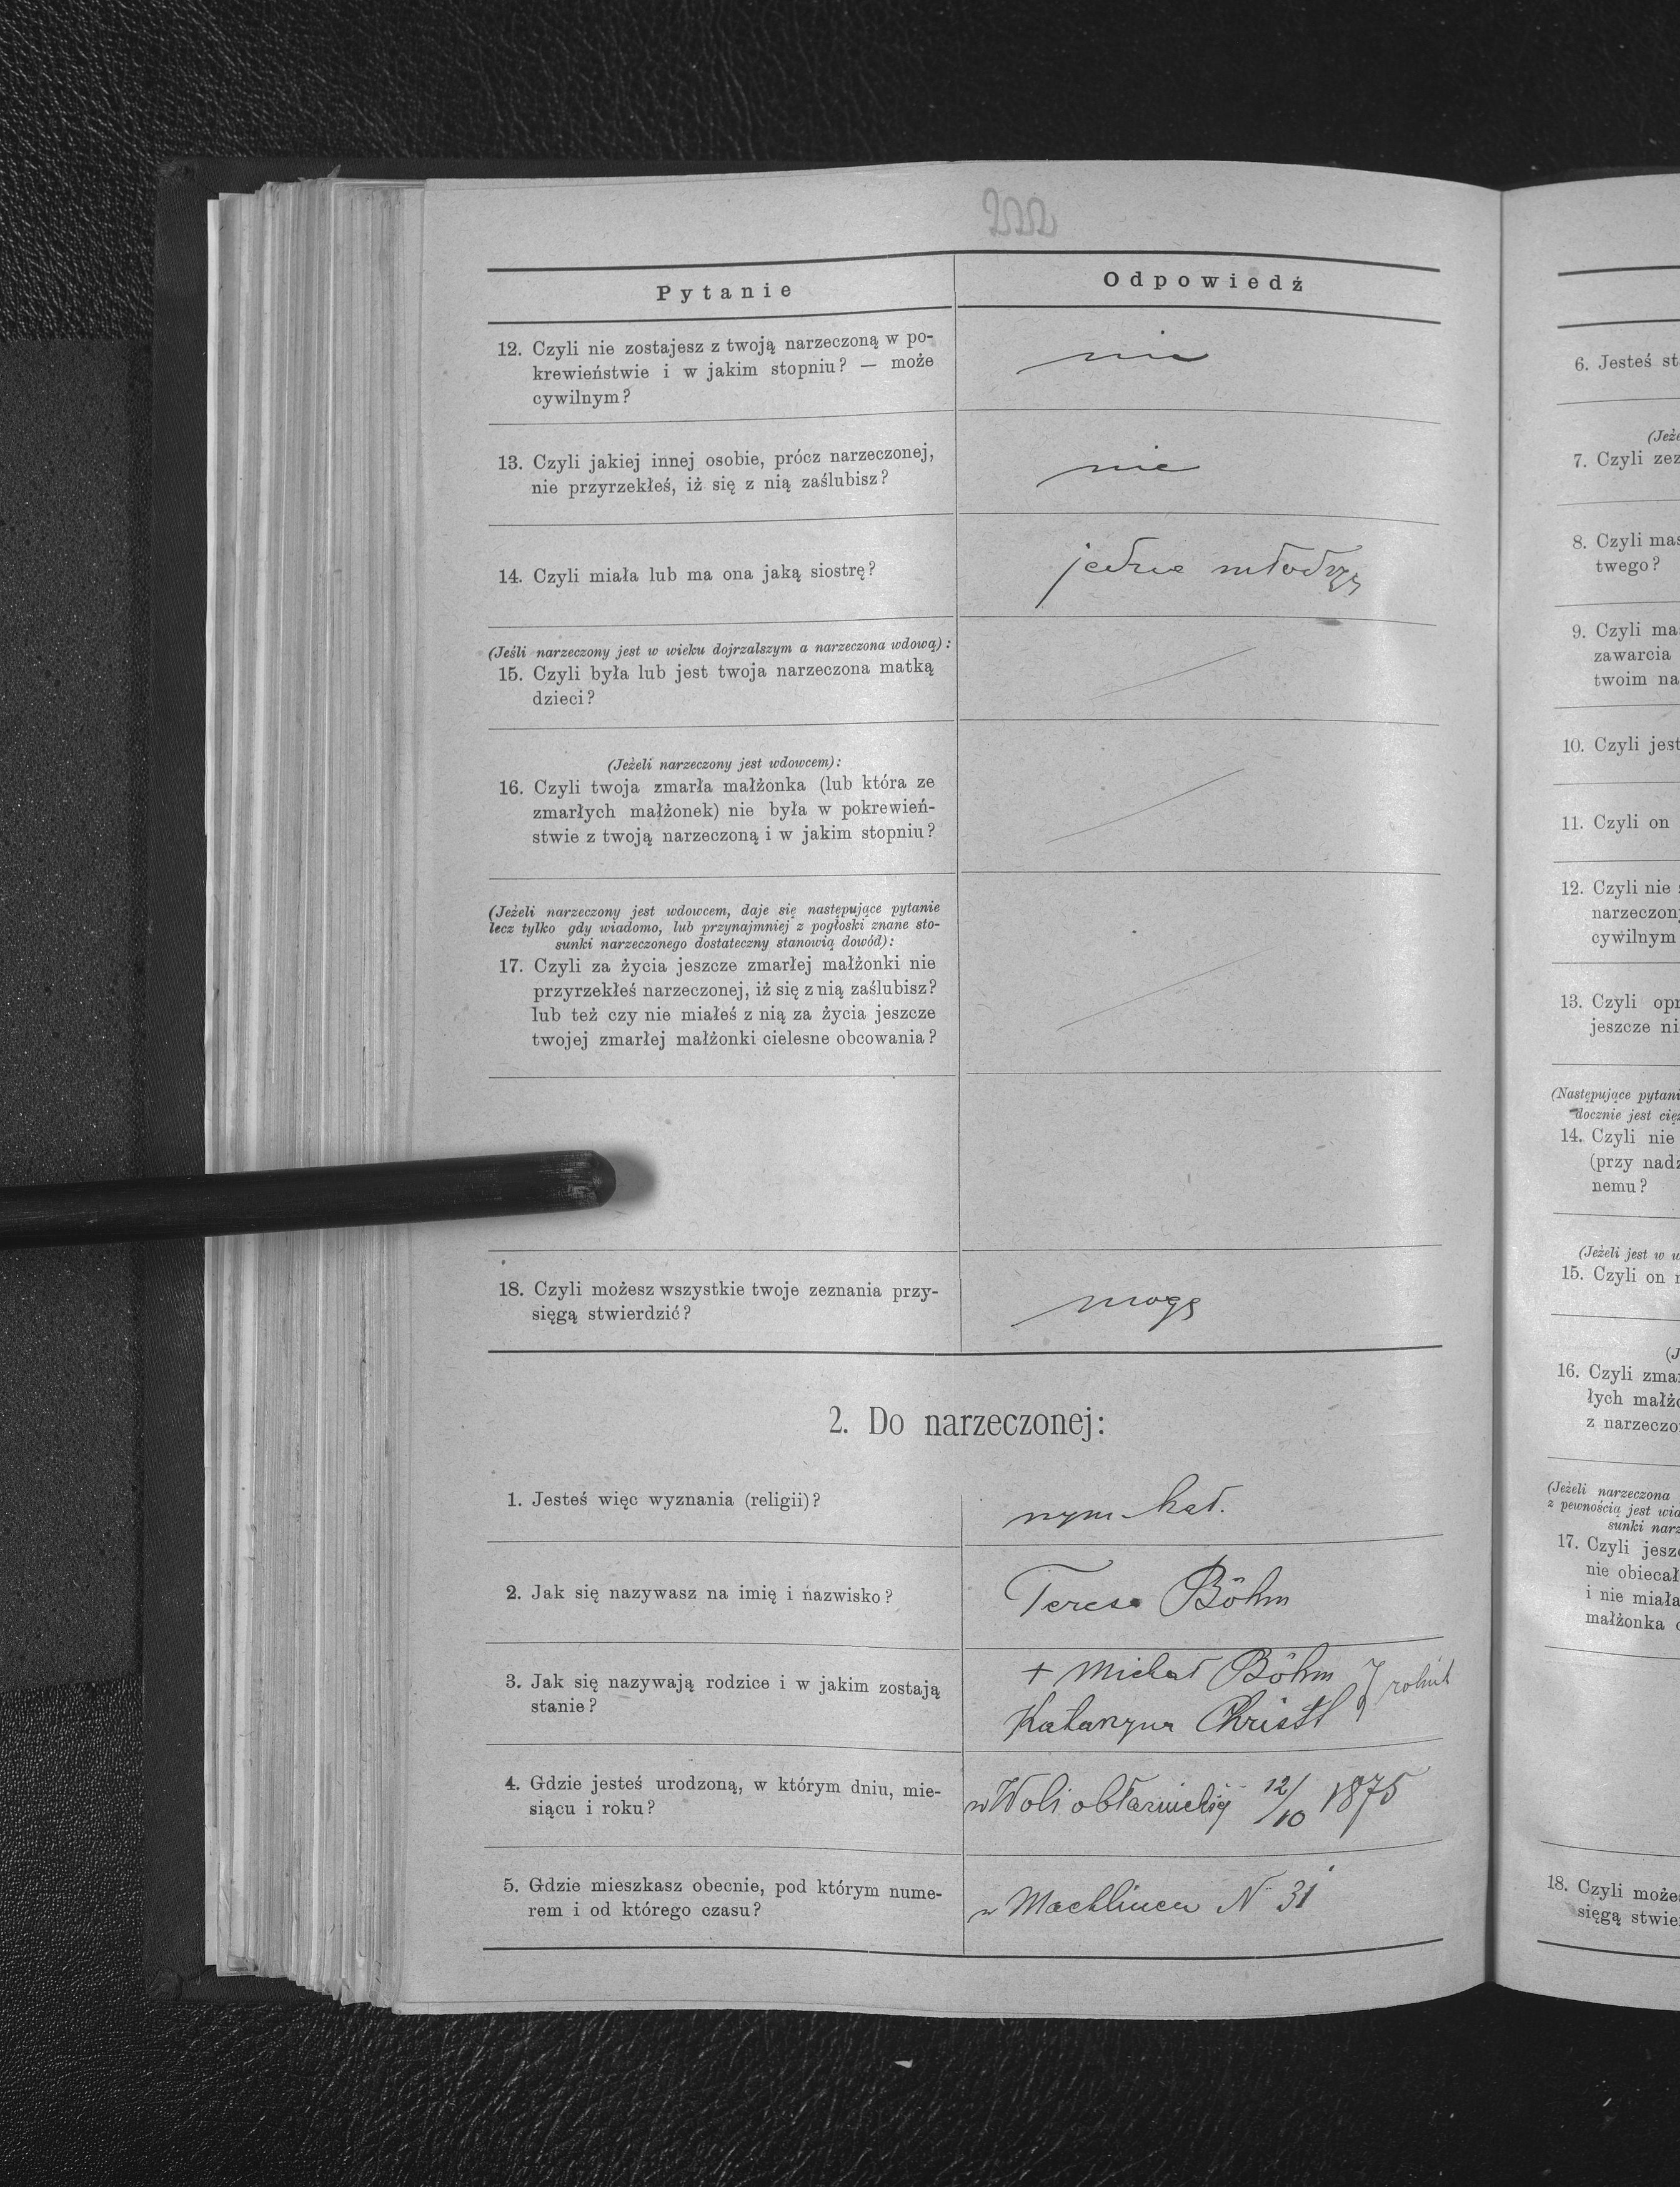 Pytanie
Odpowiedź
12. Czyli nie zostajesz z twoją narzeczoną w po-
krewieństwie i w jakim stopniu? — może
cywilnym?
nie
13. Czyli jakiej innej osobie, prócz narzeczonej,
nie przyrzekłeś, iż się z nią zaślubisz?
nie
14. Czyli miała lub ma ona jaką siostrę?
jedną młodszą
(Jeśli narzeczony jest w wieku dojrzalszym a narzeczona wdową):
15. Czyli była lub jest twoja narzeczona matką
dzieci?
(Jeżeli narzeczony jest wdowcem):
16. Czyli twoja zmarła małżonka (lub która ze
zmarłych małżonek) nie była w pokrewień-
stwie z twoją narzeczoną i w jakim stopniu?
(Jeżeli narzeczony jest wdowcem, daje się następujące pytanie
lecz tylko gdy wiadomo, lub przynajmniej z pogłoski znane sto-
sunki narzeczonego dostateczny stanowią dowód):
17. Czyli za życia jeszcze zmarłej małżonki nie
przyrzekłeś narzeczonej, iż się z nią zaślubisz?
lub też czy nie miałeś z nią za życia jeszcze
twojej zmarłej małżonki cielesne obcowania?
18. Czyli możesz wszystkie twoje zeznania przy-
sięgą stwierdzić?
mogę
2. Do narzeczonej:
1. Jesteś więc wyznania (religii)?
rzym. kat.
2. Jak się nazywasz na imię i nazwisko?
Teresa Böhm
3. Jak się nazywają rodzice i w jakim zostają
stanie?
+ Michał Böhm
Katarzyna Christl } rolnik
4. Gdzie jesteś urodzoną, w którym dniu, mie-
siącu i roku?
w Woli obłaznickiej 12/10 1875
5. Gdzie mieszkasz obecnie, pod którym nume-
rem i od którego czasu?
w Machlincu N 31
6. Jesteś st
(Jeże
7. Czyli zez
8. Czyli mas
twego?
9. Czyli ma
zawarcia
twoim na
10. Czyli jest
11. Czyli on
12. Czyli nie
narzeczon
cywilnym
13. Czyli opr
jeszcze ni
(Następujące pytani
docznie jest cię
14. Czyli nie
(przy nad
nemu?
(Jeżeli jest w
15. Czyli on
(J
16. Czyli zma
łych małżo
z narzeczo
(Jeżeli narzeczona
z pewnością jest wia
sunki narz
17. Czyli jeszc
nie obiecał
i nie miała
małżonka
18. Czyli może
sięgą stwie